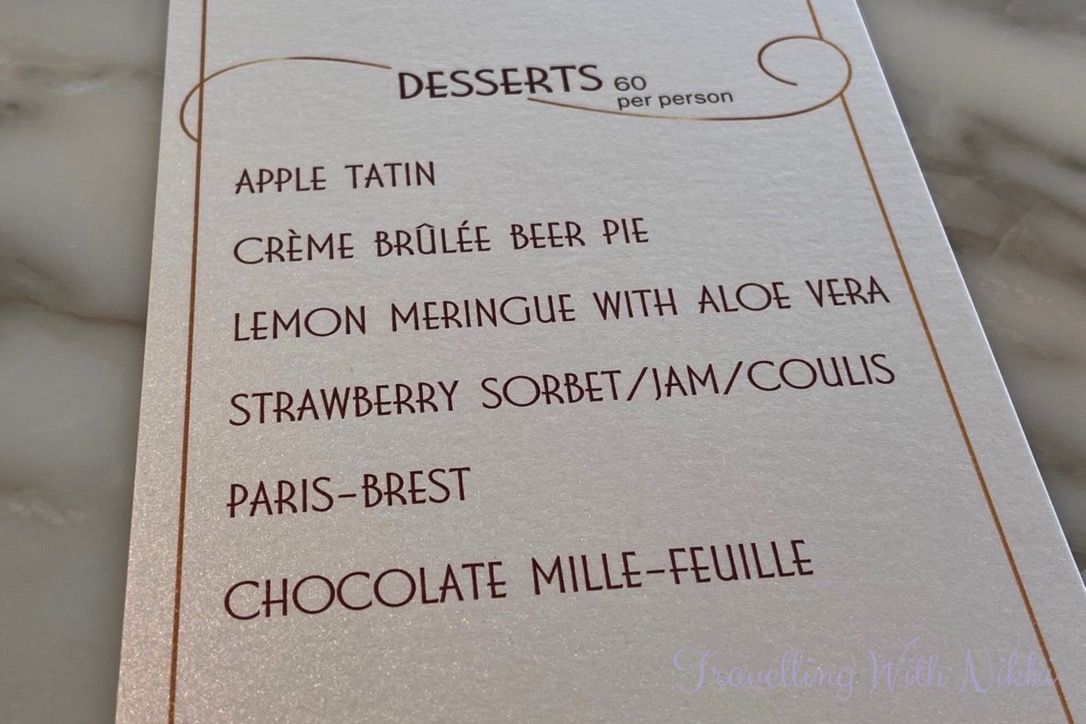 DESSERTS 60
per person
APPLE TATIN
CRÈME BRÛLÉE BEER PIE
LEMON MERINGUE WITH ALOE VERA
STRAWBERRY SORBET/JAM/COULIS
PARIS-BREST
CHOCOLATE MILLE-FEUILLE
Travelling With Nikki